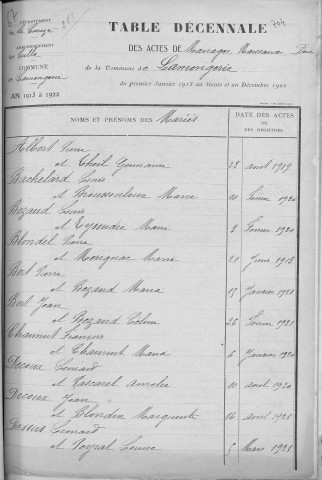 DÉPARTEMENT
de la Corrèze
ARRONDISSEMENT
Tulle
COMMUNE
de Lamongerie
AN 1913 à 1922
704
TABLE DÉCENNALE
DES ACTES DE Mariages, Naissances, Décès
de la Commune de Lamongerie
du premier Janvier 1913 au trente et un Décembre 1922
NOMS ET PRÉNOMS DES Mariés
DATE DES ACTES
OU
DES REGISTRES
Albert Pierre
et Theil Germaine 23 avril 1919
Bachelard Louis
et Maria février 1920
Bezaud Louis
et Eyssendie Marie 2 février 1920
Blondel Pierre
et Mérignac Maria 21 juin 1913
Bort Pierre
et Bezaud Maria 15 janvier 1921
Bort Jean
et Bezaud 26 février 1921
Chaumut François
et Chaumut Maria 6 janvier 1920
Decoux Léonard
et Amélie 10 avril 1920
Decoux Jean
et Blondin Marguerite 14 avril 1921
Léonard
et Peyrat Louise 5 mars 1921